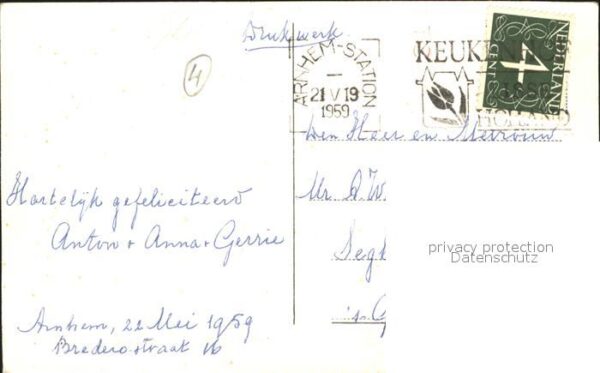 Drukwerk
4
ARNHEM-STATION
21 V 19
1959
KEUKENHOF
HOLLAND
NEDERLAND
4
CENT
Den Heer en Mevrouw
Mr. A. W.
Hartelijk gefeliciteerd
Anton + Anna + Gerrie
Segh
's-G
privacy protection
Datenschutz
Arnhem, 22 Mei 1959
Brederostraat 16